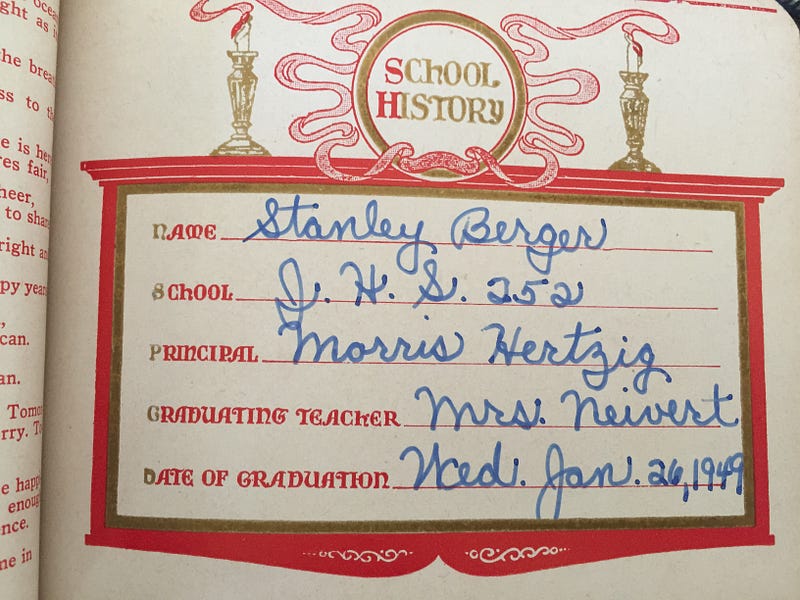 ght as i
the brea
ss to th
e is her
res fair,
heer,
to share
right an
py years
,
can.
an.
Tomo
rry. T
e happ
enoug
nce.
ne in
SCHOOL
HISTORY
NAME Stanley Berger
SCHOOL J. H. S. 252
PRINCIPAL Morris Hertzig
GRADUATING TEACHER Mrs. Neivert
DATE OF GRADUATION Wed. Jan. 26, 1949